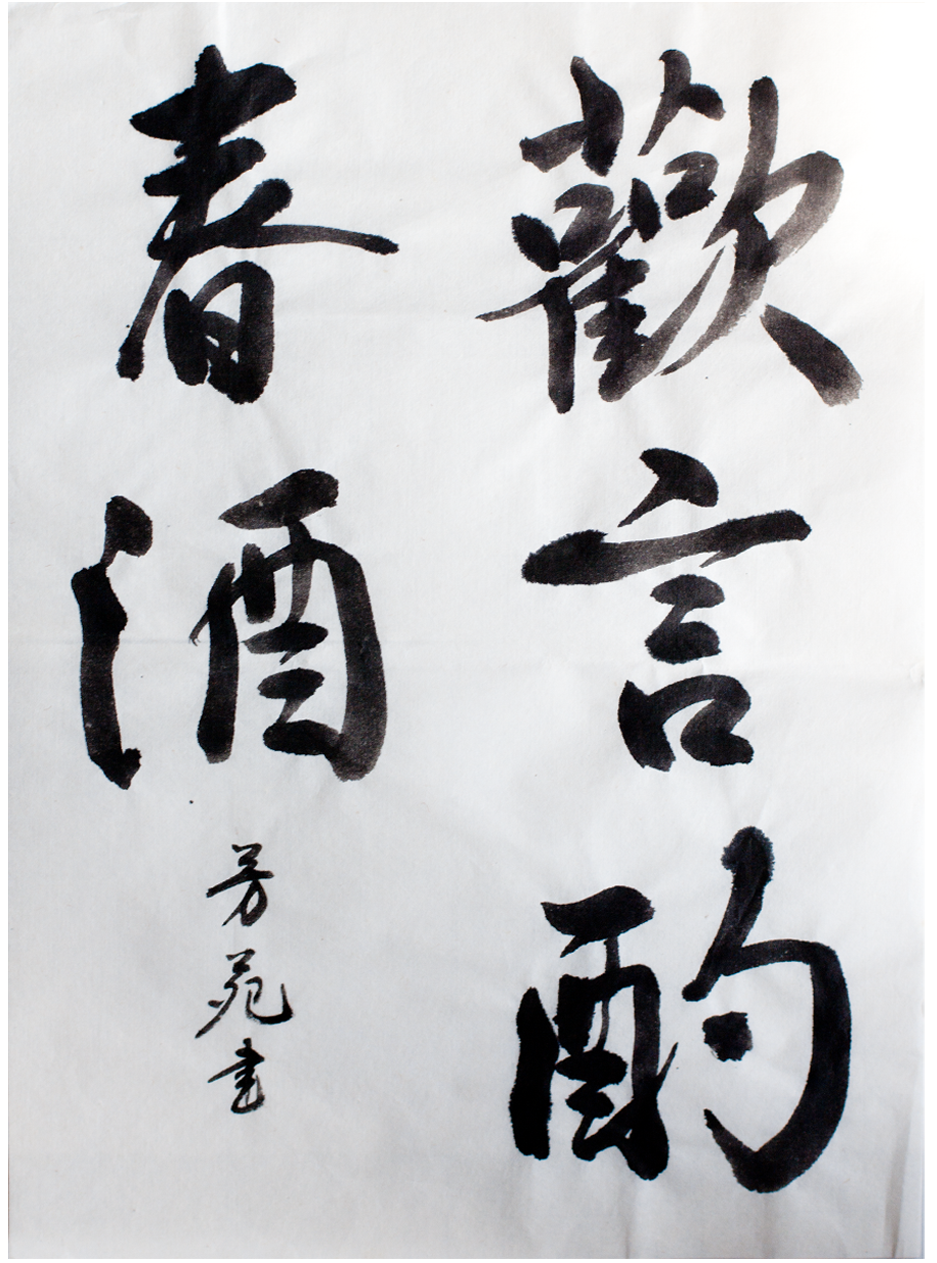 歡言酌
春酒
芳苑书